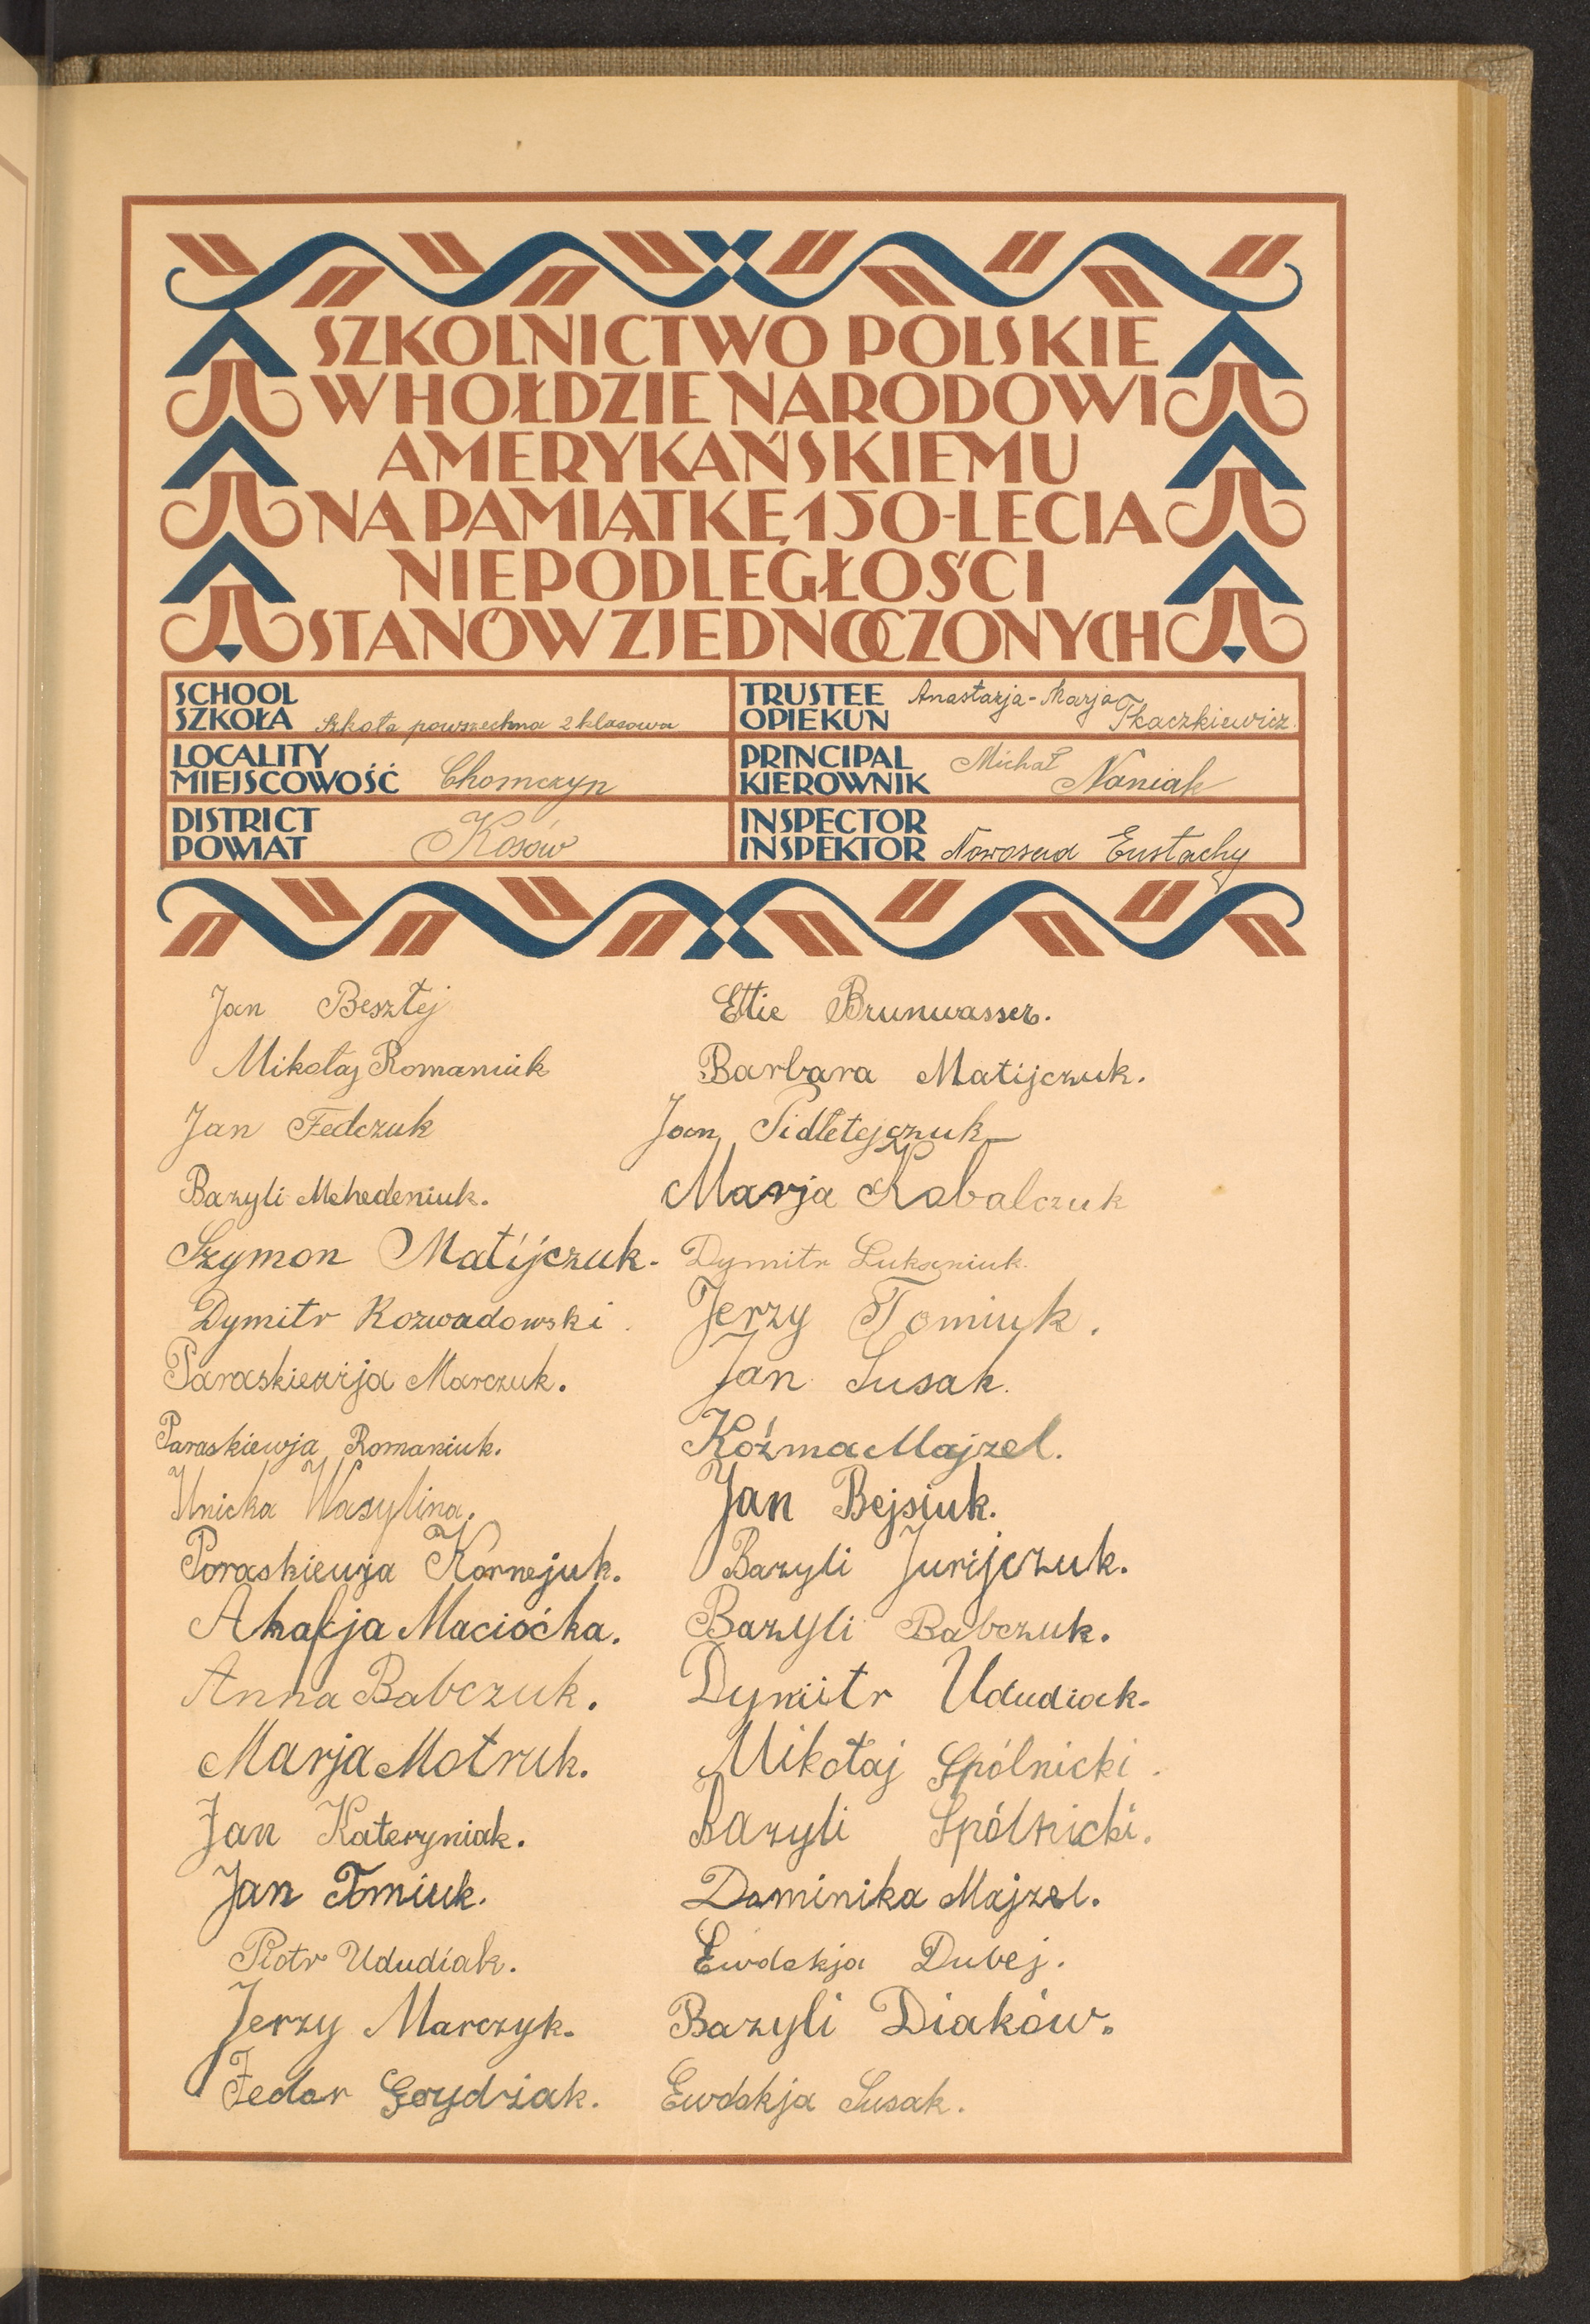 SZKOLNICTWO POLSKIE
W HOŁDZIE NARODOWI
AMERYKAŃSKIEMU
NA PAMIĄTKĘ 150-LECIA
NIEPODLEGŁOŚCI
STANÓW ZJEDNOCZONYCH
SCHOOL
SZKOŁA Szkoła powszechna 2 klasowa
TRUSTEE
OPIEKUN Anastazja-Marja Tkaczkiewicz.
LOCALITY
MIEJSCOWOŚĆ Chomczyn
PRINCIPAL
KIEROWNIK Michał Naniak
DISTRICT
POWIAT Kosów
INSPECTOR
INSPEKTOR Nowosad Eustachy
Jan Besztej
Mikołaj Romaniuk
Jan Fedczuk
Bazyli Mehedeniuk.
Szymon Matijczuk.
Dymitr Rozwadowski.
Paraskiewija Marczuk.
Paraskiewja Romaniuk.
Unicka Wasylina.
Poraskiewja Kornejuk.
Ahafja Maciočka.
Anna Babczuk.
Marja Motruk.
Jan Kateryniak.
Jan Tomiuk.
Piotr Ududiak.
Jerzy Marczyk.
Fedor Gordziak.
Ettie Brunwasser.
Barbara Matijczuk.
Jan Pidłetejczuk
Marja Kobalczuk
Dymitr Lukseniuk.
Jerzy Tomiuk.
Jan Susak.
Koźma Majzel.
Jan Bejsiuk.
Bazyli Jurijczuk.
Bazyli Babczuk.
Dymitr Ududiak.
Mikołaj Spólnicki.
Bazyli Spólnicki.
Dominika Majzel.
Ewdokja Dubej.
Bazyli Diaków.
Ewdokja Susak.